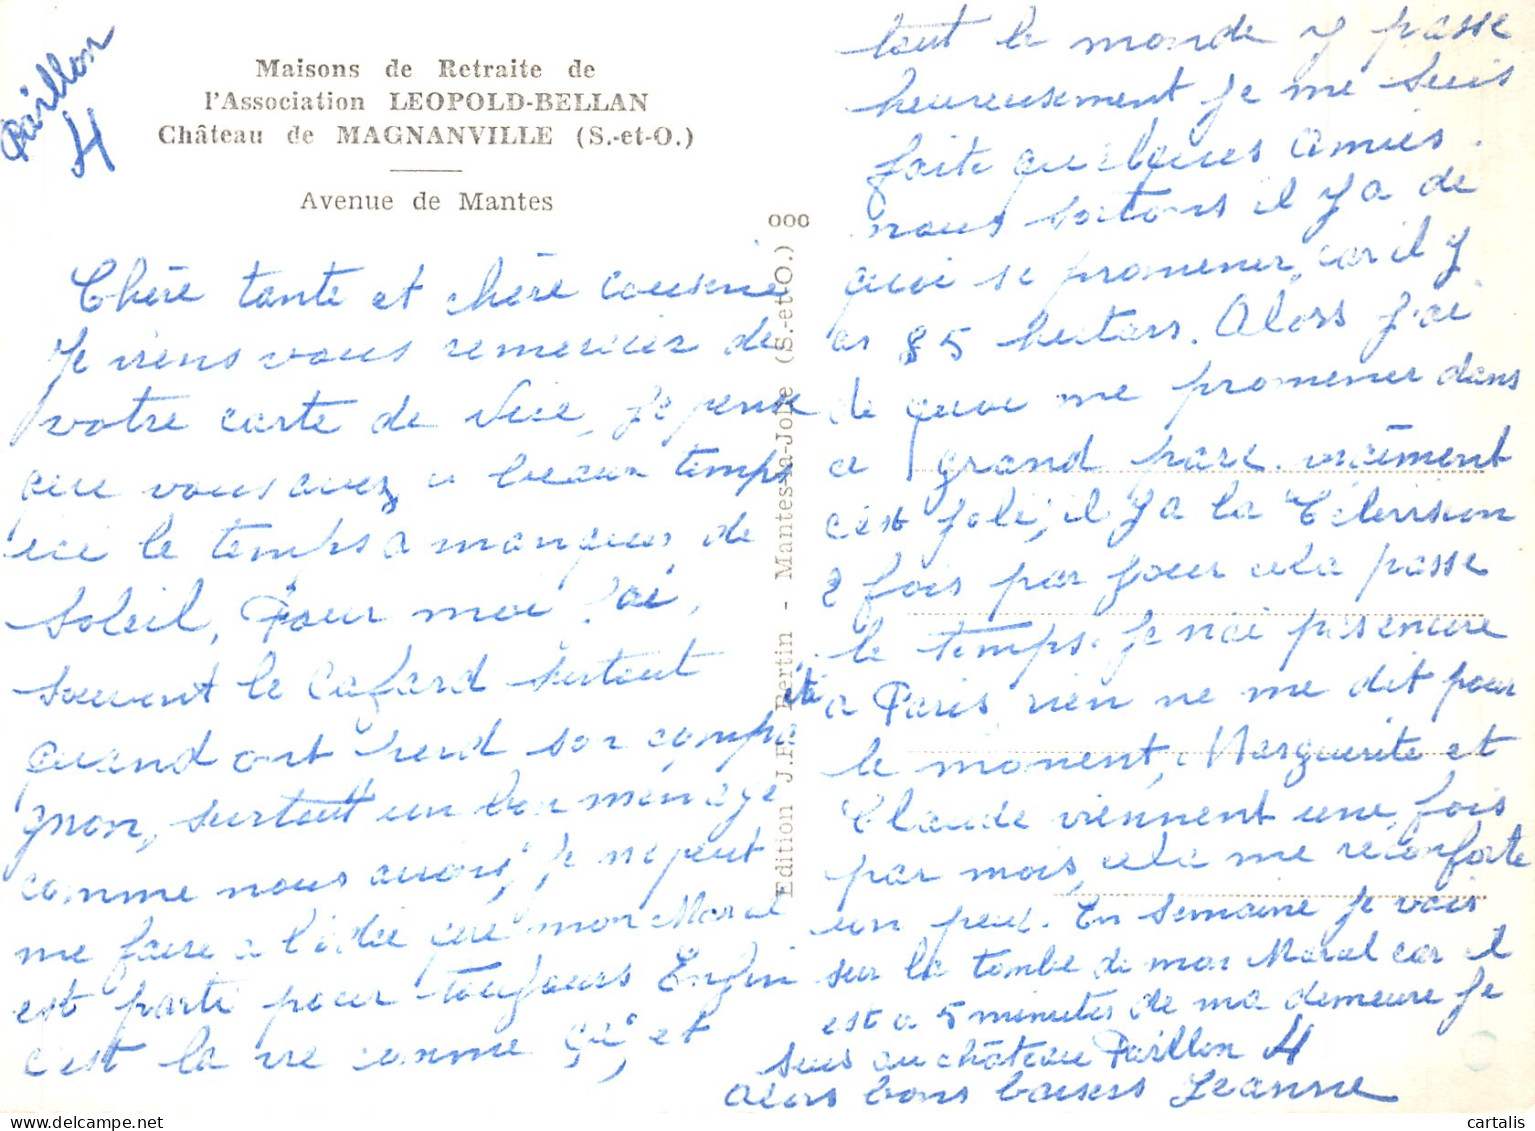 Pavillon
4
Maisons de Retraite de
l'Association LEOPOLD-BELLAN
Château de MAGNANVILLE (S.-et-O.)
Avenue de Mantes
Chère tante et chère cousine
Je viens vous remercier de
votre carte de Nice, je pense
que vous avez u beaux temps
ici le temps a manquer de
Soleil, Pour moi j'ai,
souvent le Cafard surtout
quand ont perd son compa
gnon, surtout un bon ménage
comme nous avions, je ne peut
me faire a l'idée que mon Marcel
est parti pour toujours Enfin
c'est la vie comme ça, et
ooo
Edition J.F. Bertin - Mantes-la-Jolie (S.-et-O.)
tout le monde y passe
heureusement je me suis
faite quelques amies.
nous sortons il y a de
quoi se promener, car il y
as 85 hectars. Alors j'ai
de quoi me promener dans
ce grand parc. vraiment
c'est joli, il y a la Télévision
2 fois par jour cela passe
le temps. Je n'ai pas encore
été a Paris, rien ne me dit pour
le moment, Marguerite et
Claude viennent une fois
par mois, cela me réconforte
un peu. En semaine je vais
sur la tombe de mon Marcel car il
est a 5 minutes de ma demeure je
suis au château Pavillon 4
Alors bons baisers Jeanne
cartalis.com